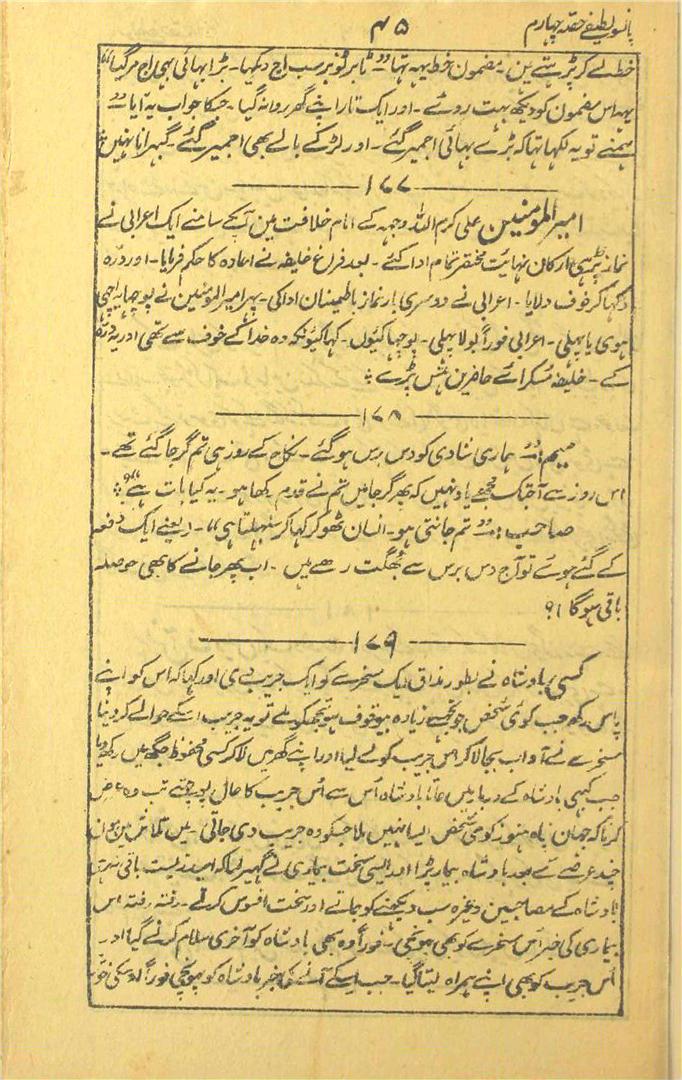 پانسو لطیفے حصہ چہارم
۴۵
خط لے کر پڑھتے ہین۔ مضمون خط یہہ تہا ״ تابر توبر سب اج دکہا۔ بڑا بہائی بہی اج مر گیا״
یہہ اس مضمون کو دیکھ بہت روئے۔ اور ایک تار اپنے گھر روانہ گیا۔ جسکا جواب یہ آیا ״
ہمنے تو یہ لکہا تہا کہ بڑے بہائی اجمیر گئے۔ اور لڑکے بالے بھی اجمیر گئے۔ گہبرانا نہین״
۱۷۷
امیر المومنین علی کرم اللہ وجہہ کے ایام خلافت مین آپکے سامنے ایک اعرابی نے
نماز پڑہی ارکان نہایت مختصر تمام ادا کئے۔ بعد فراغ خلیفہ نے اعادہ کا حکم فرمایا۔ اور درّہ
دکہا کر خوف دلایا۔ اعرابی نے دوسری بار نماز باطمینان ادا کی۔ پہر امیر المومنین نے پوچہا یہ اچہی
ہوی یا پہلی۔ اعرابی فوراً بولا پہلی۔ پوچہا کیوں۔ کہا کیونکہ وہ خدا کے خوف سے تھی اور یہ درّہ
کے۔ خلیفہ مسکرائے حاضرین ہنس پڑے
۱۷۸
میم :۔ ״ ہماری شادی کو دس برس ہوگئے۔ نکاح کے روز ہی تم گرجا گئے تھے۔
اس روز سے آجتک مجھے یاد نہیں کہ پھر گرجا میں تم نے قدم رکھا ہو۔ یہ کیا بات ہے״؟
صاحب :۔ ״ تم جانتی ہو۔ انسان ٹھوکر کہا کر سنبھلتا ہی״۔ (یعنے ایک دفعہ
کے گئے ہوئے تو آج دس برس سے بُھگت رہے ہیں۔ اب پھر جانے کا بھی حوصلہ
باقی ہوگا !؟
۱۷۹
کسی بادشاہ نے بطور مذاق ایک مسخرے کو ایک جریب دی اور کہا کہ اس کو اپنے
پاس رکھ جب کوئی شخص جو تجھسے زیادہ بیوقوف ہو تجھکو ملے تو یہ جریب اسکے حوالے کر دینا
مسخرے نے آداب بجا لا کر اس جریب کو لے لیا اور اپنے گھر میں لا کر کسی محفوظ جگہ میں رکھ دیا
جب کبہی بادشاہ کے دربار میں جاتا بادشاہ اُس سے اُس جریب کا حال پوچہتے تب وہ عرض
کرتا کہ جہان پناہ ہنوز کوئی شخص ایسا نہیں ملا جسکو وہ جریب دی جاتی۔ میں تلاش مین ہون
چند عرصے کے بعد بادشاہ بیمار پڑا اور ایسی سخت بیماری نے گھیر لیا کہ امید زیست باقی نہ رہی
بادشاہ کے مصاحبین وغیرہ سب دیکہنے کو جاتے اور سخت افسوس کرتے۔ رفتہ رفتہ اس
بیماری کی خبر اُس مسخرے کو بھی پہونچی۔ فوراً وہ بھی بادشاہ کو آخری سلام کرنے گیا اور
اُس جریب کو بھی اپنے ہمراہ لیتا گیا۔ جب اسکے آنے کی خبر بادشاہ کو پہونچی فوراً اوسکی